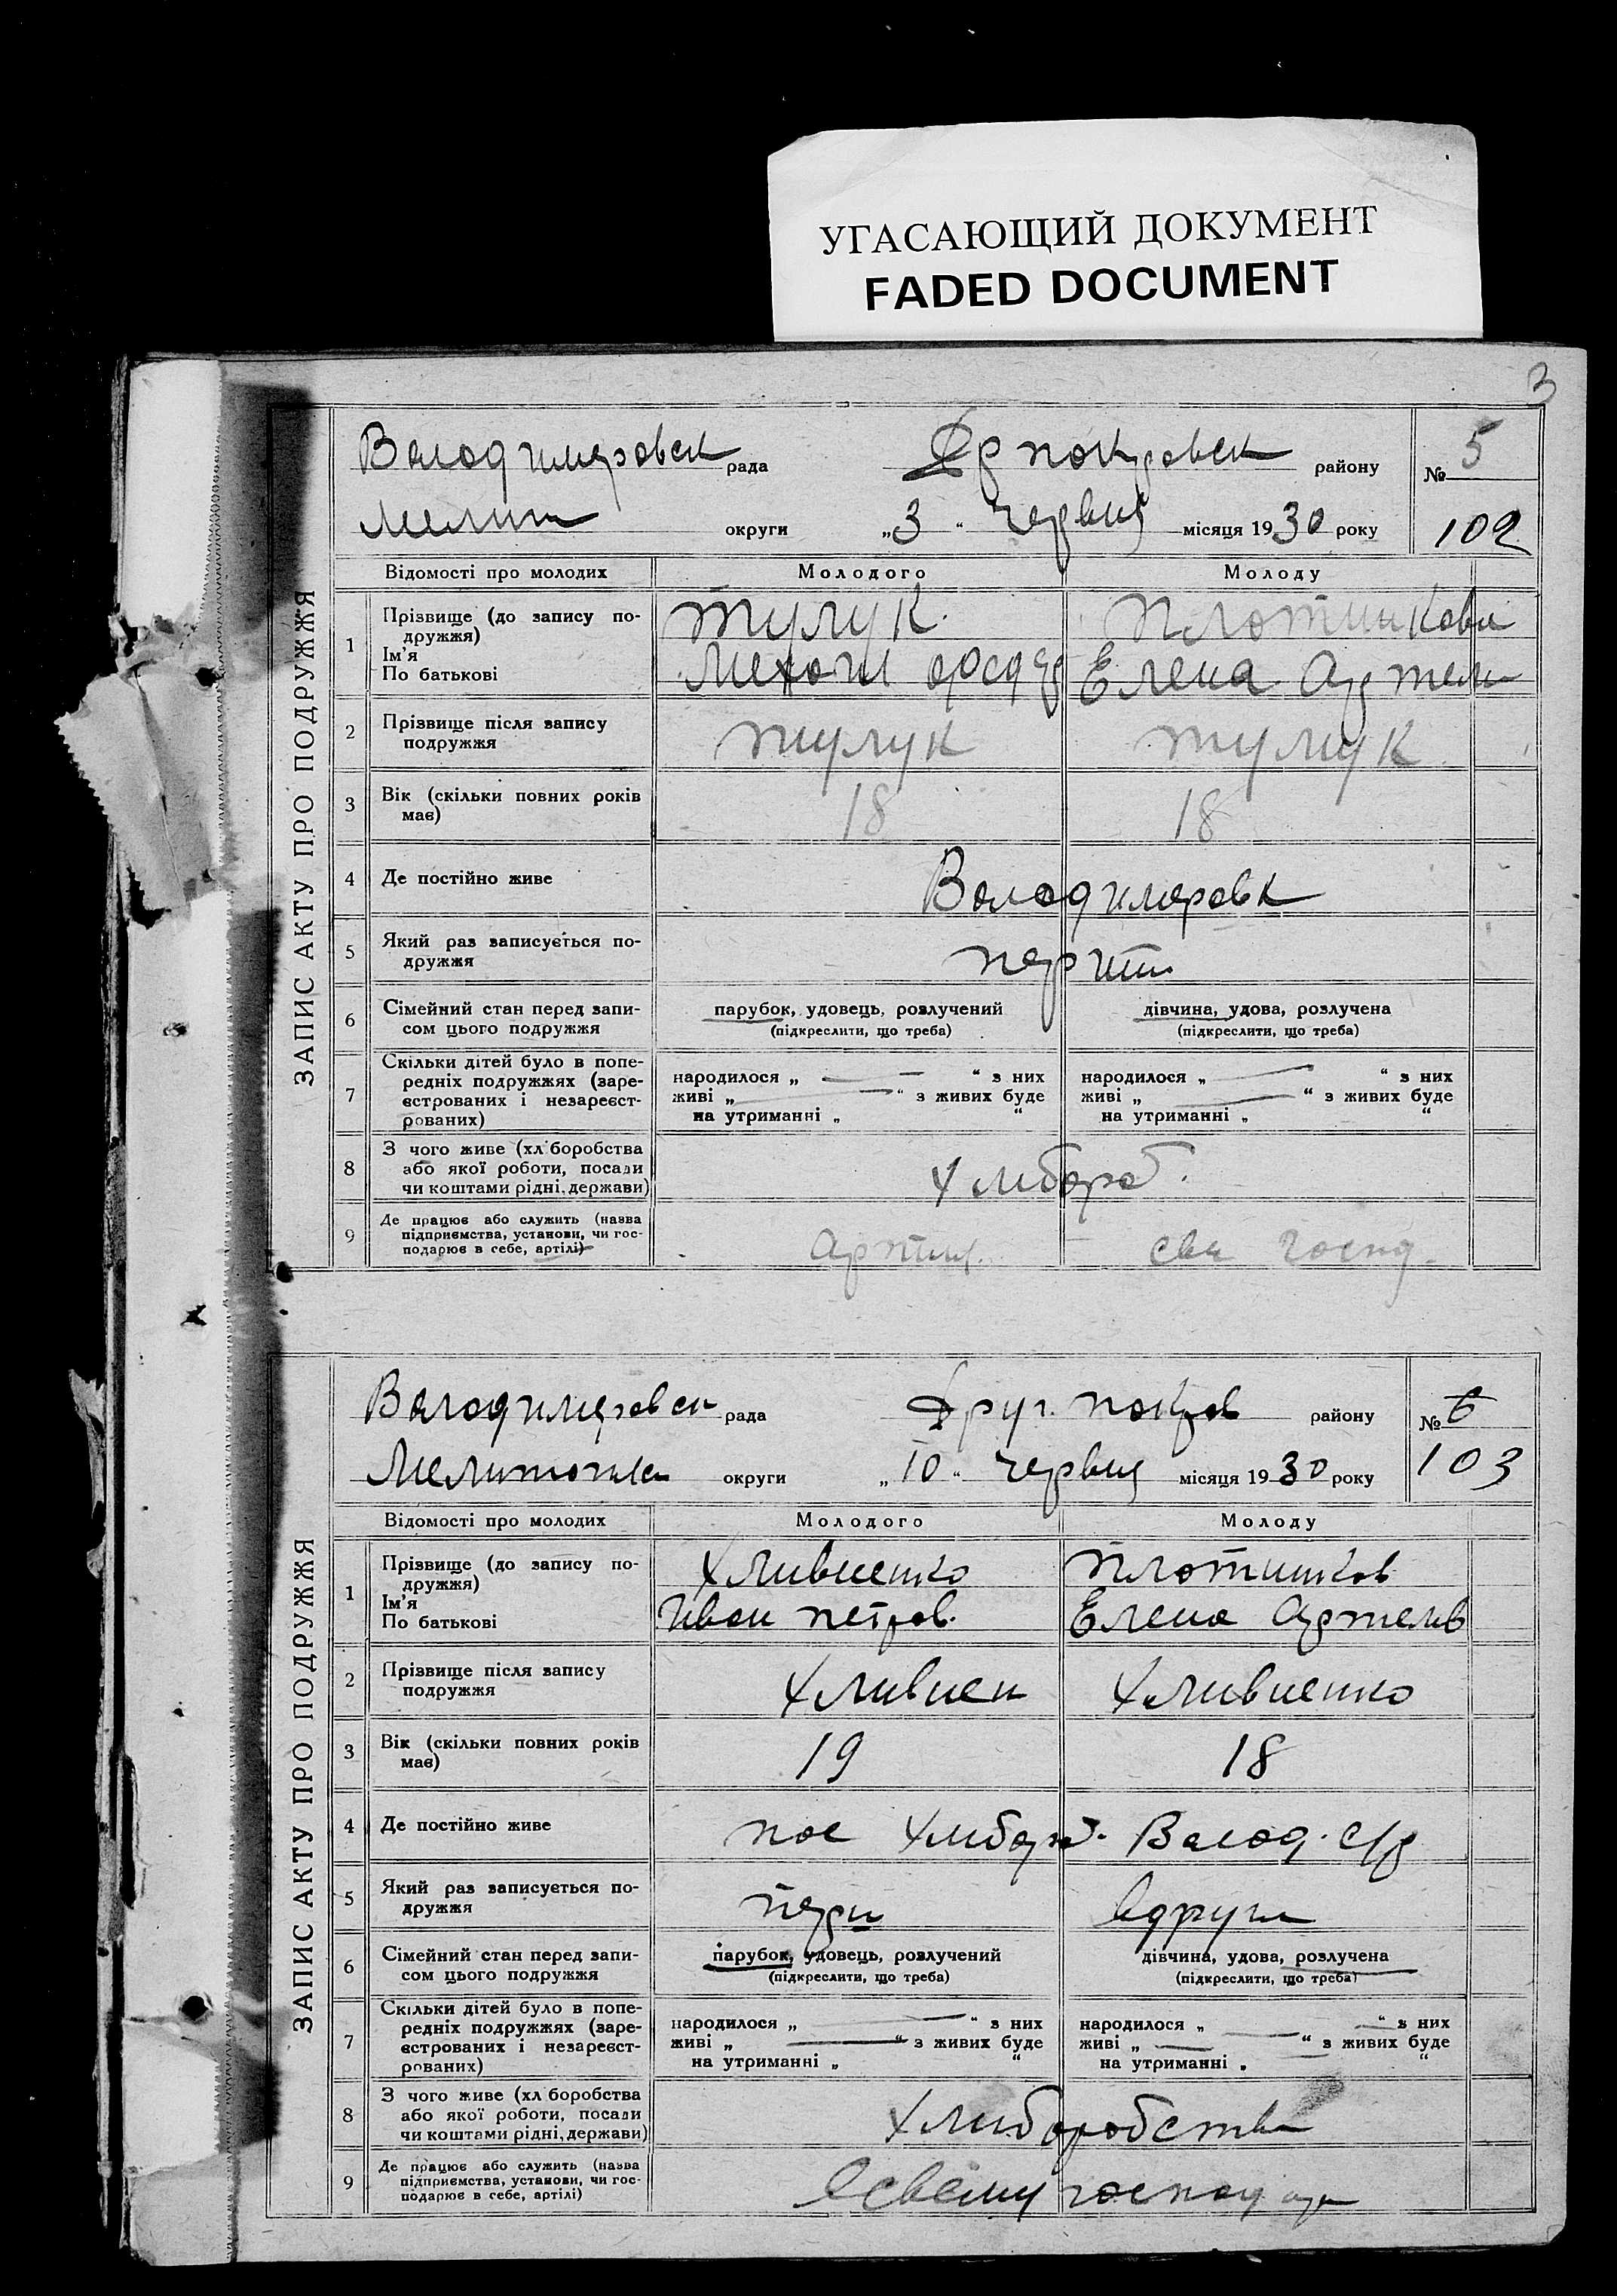 УГАСАЮЩИЙ ДОКУМЕНТ
FADED DOCUMENT
3
ЗАПИС АКТУ ПРО ПОДРУЖЖЯ
Володимеровськ рада Др покровськ району № 5
Мелит округи „3“ червня місяця 1930 року 102
Відомості про молодих Молодого Молоду
1 Прізвище (до запису по-
дружжя)
Ім'я
По батькові
Тулук Плотникова
Федор Елена Артем
2 Прізвище після запису
подружжя
тулук тулук
3 Вік (скільки повних років
має)
18 18
4 Де постійно живе Володимеровк
5 Який раз записується по-
дружжя
перший
6 Сімейний стан перед запи-
сом цього подружжя
парубок, удовець, розлучений дівчина, удова, розлучена
(підкреслити, що треба) (підкреслити, що треба)
7 Скільки дітей було в попе-
редніх подружжях (заре-
єстрованих і незареєст-
рованих)
народилося „ — “ з них народилося „ — “ з них
живі „ — “ з живих буде живі „ — “ з живих буде
на утриманні „ “ на утриманні „ “
8 З чого живе (хл боробства
або якої роботи, посади
чи коштами рідні, держави)
хлибороб.
9 Де працює або служить (назва
підприємства, установи, чи гос-
подарює в себе, артілі)
Артил. свк госпд.
ЗАПИС АКТУ ПРО ПОДРУЖЖЯ
Володимеровск рада Друг. покров району № 6
Мелитопил округи „10“ червня місяця 1930 року 103
Відомості про молодих Молодого Молоду
1 Прізвище (до запису по-
дружжя)
Ім'я
По батькові
Хливненко Плотников
Иван петров. Елена Артемв
2 Прізвище після запису
подружжя
Хливнен Хливненко
3 Вік (скільки повних років
має)
19 18
4 Де постійно живе пос Хлибороб. Волод. с/р
5 Який раз записується по-
дружжя
перш вдруги
6 Сімейний стан перед запи-
сом цього подружжя
парубок, удовець, розлучений дівчина, удова, розлучена
(підкреслити, що треба) (підкреслити, що треба)
7 Скільки дітей було в попе-
редніх подружжях (заре-
єстрованих і незареєст-
рованих)
народилося „ — “ з них народилося „ — “ з них
живі „ — “ з живих буде живі „ — “ з живих буде
на утриманні „ “ на утриманні „ “
8 З чого живе (хл боробства
або якої роботи, посади
чи коштами рідні, держави)
хлиборобства
9 Де працює або служить (назва
підприємства, установи, чи гос-
подарює в себе, артілі)
В своему господар